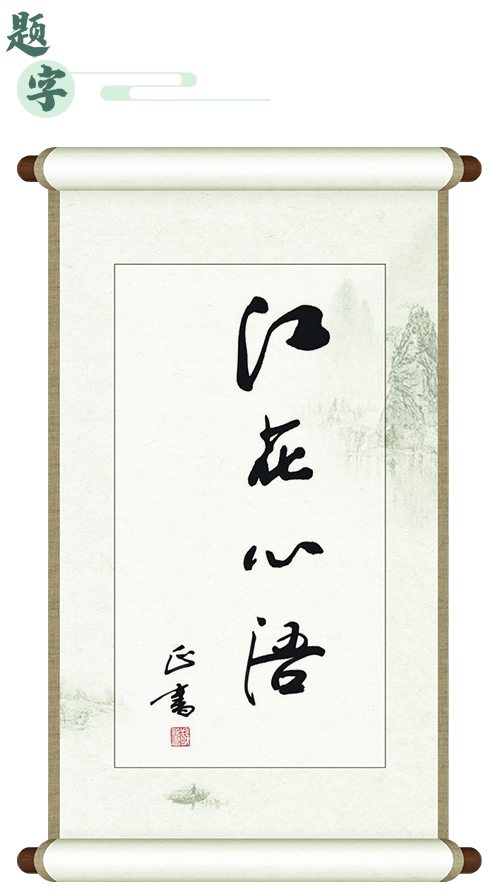 题字
江花心语
正书